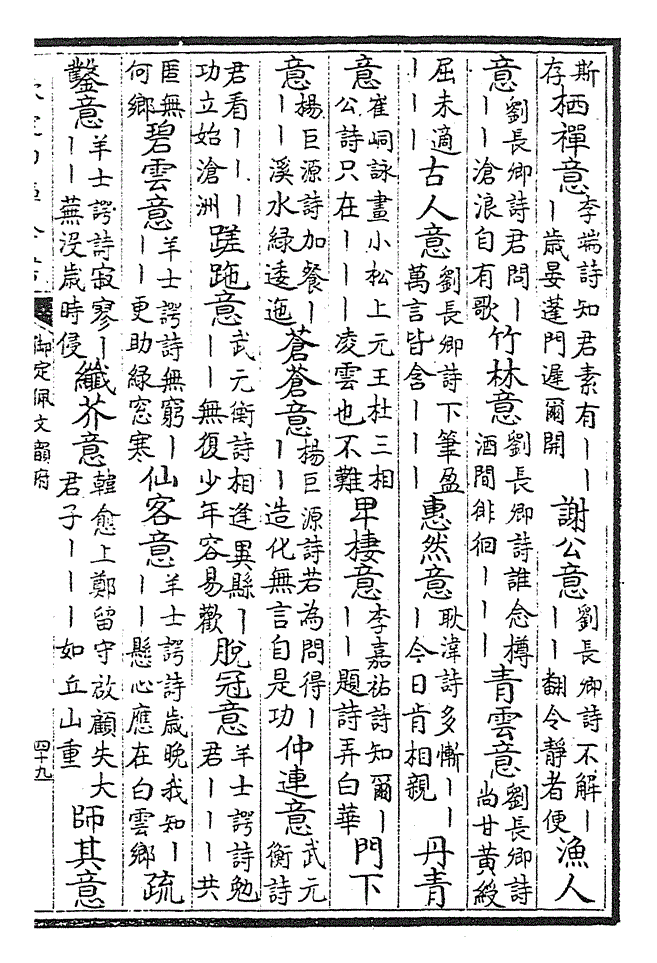 斯存栖禪意李端詩知君素有丨丨丨歲晏蓬門遲爾開謝公意劉長卿詩不解丨丨丨翻令靜者便漁人
意劉長卿詩君問丨丨丨滄浪自有歌竹林意劉長卿詩誰念樽酒間徘徊丨丨丨青雲意劉長卿詩尚甘黃綬
屈未適丨丨丨古人意劉長卿詩下筆盈萬言皆含丨丨丨惠然意耿湋詩多慚丨丨丨今日肯相親丹青
意崔峒詠畫小松上元王杜三相公詩只在丨丨丨凌雲也不難早棲意李嘉祐詩知爾丨丨丨題詩弄白華門下
意楊巨源詩加餐丨丨丨溪水綠逶迤蒼蒼意楊巨源詩若為問得丨丨丨造化無言自是功仲連意武元衡詩
君看丨丨丨功立始滄洲蹉跎意武元衡詩相逢異縣丨丨丨無復少年容易歡脫冠意羊士諤詩勉君丨丨丨共
匡無何鄉碧雲意羊士諤詩無窮丨丨丨更助綠窓寒仙客意羊士諤詩歲晚我知丨丨丨懸心應在白雲鄉疏
鑿意羊士諤詩寂寥丨丨丨蕪沒歲時侵纖芥意韓愈上鄭留守啟顧失大君子丨丨丨如丘山重師其意
御定佩文韻府
四十九